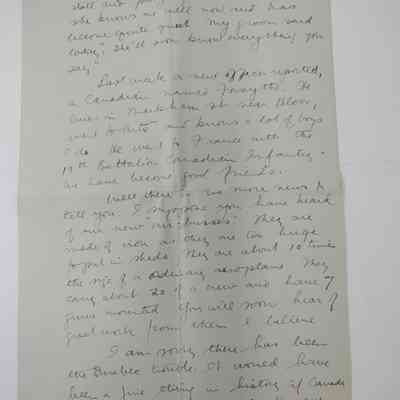 she knows me well now and has
become quite quiet. My groom said
today "She'll soon know everything you
say."
Last week a new officer arrived,
a Canadian named Forsythe. He
lives in Markham St. near Bloor,
went to and knows a lot of boys
I do. He went to France with the
19th Battalion Canadian Infantry.
We have become good friends.
Well there is no more news to
tell you. I suppose you have heard
of our new air-busses. They are
made of iron as they are too huge
to put in sheds. They are about 10 times
the size of a ordinary aeroplane. They
carry about 20 of a crew and have 7
guns mounted. You will soon hear of
great work from them I believe
I am sorry there has been
the Quebec trouble. It would have
been a fine thing in history if Canada